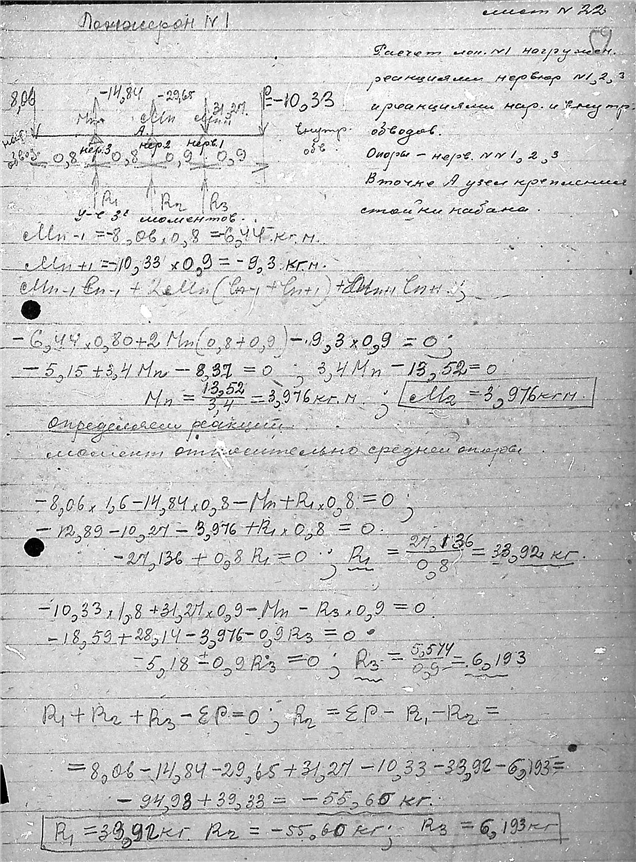 лист N 22
Лонжерон N 1
Расчет лон. N1 нагружен.
реакциями нервюр N1,2,3
и реакциями нар. и внутр.
обводов.
Опоры – нерв. NN 1, 2, 3
В точке А узел крепления
стойки кабана.
8,06 -14,84 -29,65 31,27 P=-10,33
Mn
А
внутр.
обв.
нер.3 нер.2 нерв.1
0,8 0,8 0,9 0,9
R1 R2 R3
У-е 3х моментов.
Mn-1 = -8,06 x 0,8 = -6,44 кг.м.
Mn+1 = -10,33 x 0,9 = -9,3 кг.м.
Mn-1 ln-1 + 2Mn (ln-1 + ln+1) + Mn+1 ln+1 ;
-6,44 x 0,80 + 2 Mn (0,8 + 0,9) - 9,3 x 0,9 = 0;
-5,15 + 3,4 Mn - 8,37 = 0 ; 3,4 Mn - 13,52 = 0
Mn = 13,52 / 3,4 = 3,976 кг.м ; M2 = 3,976 кгм
определяем реакции
момент относительно средней опоры
-8,06 x 1,6 - 14,84 x 0,8 - Mn + R1 x 0,8 = 0 ;
-12,89 - 10,27 - 3,976 + R1 x 0,8 = 0
-27,136 + 0,8 R1 = 0 ; R1 = 27,136 / 0,8 = 33,92 кг.
-10,33 x 1,8 + 31,27 x 0,9 - Mn - R3 x 0,9 = 0
-18,59 + 28,14 - 3,976 - 0,9 R3 = 0
-5,18 - 0,9 R3 = 0 ; R3 = 5,574 / 0,9 = 6,193
R1 + R2 + R3 - ΣP = 0 ; R2 = ΣP - R1 - R2 =
= 8,06 - 14,84 - 29,65 + 31,27 - 10,33 - 33,92 - 6,193 =
- 94,93 + 39,33 = - 55,60 кг.
R1 = 33,92 кг. R2 = -55,60 кг ; R3 = 6,193 кг